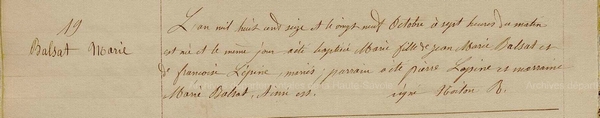 19
Balsat Marie
L'an mil huit cent seize et le vingt neuf Octobre à sept heures du matin
est née et le même jour a été baptisée Marie fille de jean Marie Balsat et
de françoise Lépine, mariés, parrain a été pierre Lepine et marraine
Marie Balsat, Ainsi est. signé R.